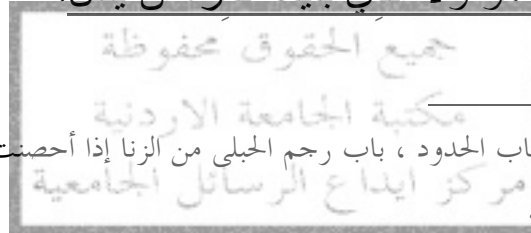 جميع الحقوق محفوظة
مكتبة الجامعة الاردنية
باب الحدود ، باب رجم الحبلى من الزنا إذا أحصنت
مركز ايداع الرسائل الجامعية